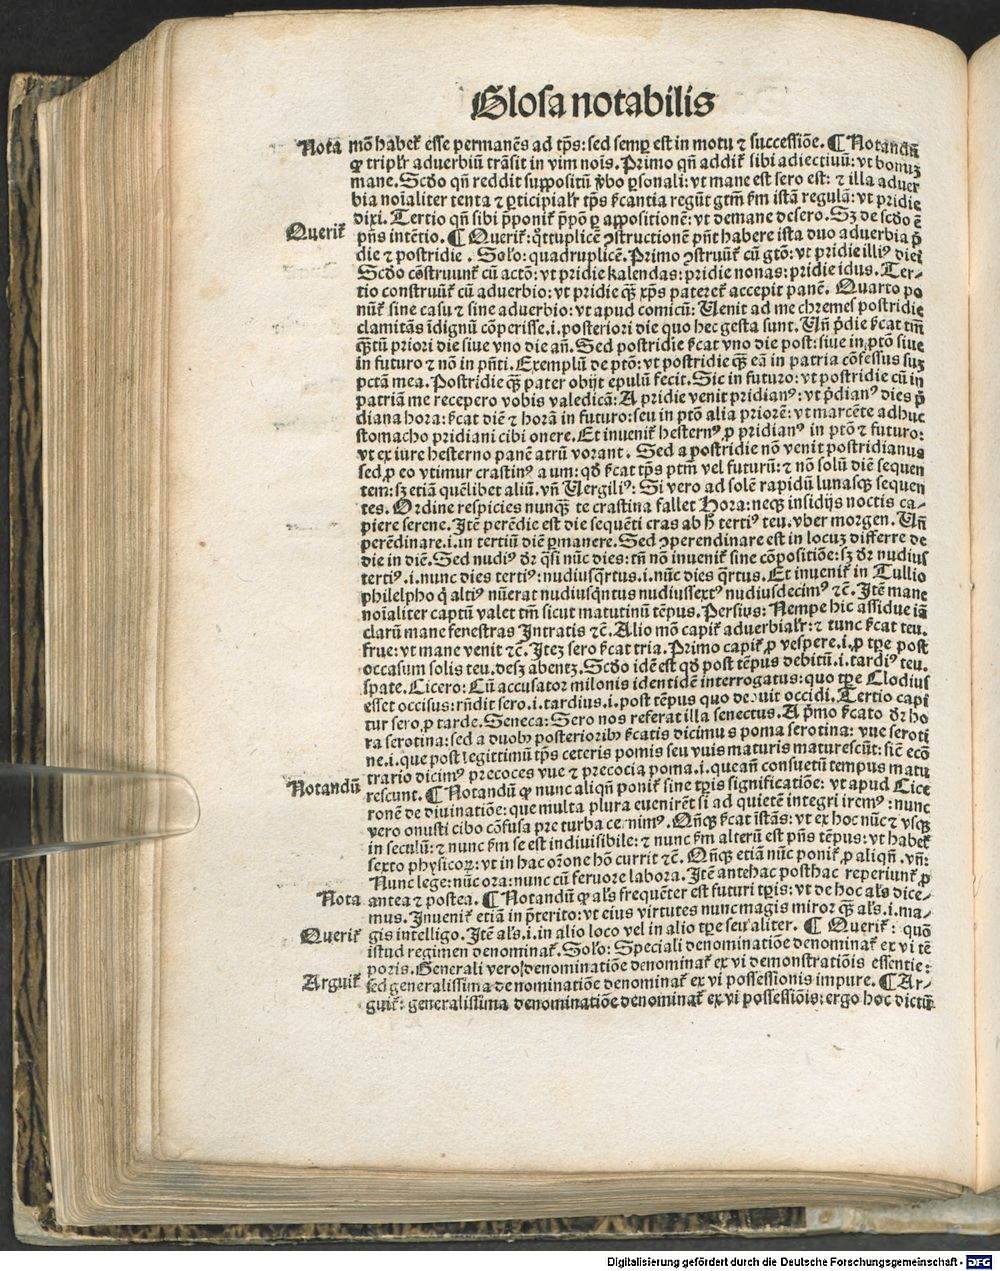 Glosa notabilis
Nota mō habet̄ esse permanēs ad tp̄s: sed semp̱ est in motu ⁊ successiōe. ¶ Notandū
ꝙ tripl'r aduerbiū trāsit in vim nois. Primo qn̄ addit̄ sibi adiectiuū: vt bonuꝫ
mane. Scd̓o qn̄ reddit suppositū v̄bo ꝑsonali: vt mane est sero est: ⁊ illa aduer
bia noīaliter tenta ⁊ ꝑticipial'r tp̄s ẜcantia regūt gtm̄ ẜm istā regulā: vt pridie
dixi. Tertio qn̄ sibi p̄ponit̄ p̄pō ꝑ appositionē: vt demane desero. Sꝫ de scd̓o ē
Querit̄ pn̄s intētio. ¶ Querit̄: q̊ttuplicē ꝯstructionē pn̄t habere ista duo aduerbia p̄
die ⁊ postridie. Sol'o: quadruplicē. Primo ꝯstruūt̄ cū gtō: vt pridie illiꝰ diei
Scd̓o cōstruunt̄ cū actō: vt pridie kalendas: pridie nonas: pridie idus. Ter-
tio construūt̄ cū aduerbio: vt pridie qꝫ̄ xp̄s pateret̄ accepit panē. Quarto po
nūt̄ sine casu ⁊ sine aduerbio: vt apud comicū: Uenit ad me chremes postridie
clamitās īdignū cōperisse. i. posteriori die quo hec gesta sunt. Un̄ p̄die ẜcat tm̄
qꝫ̄tū priori die siue vno die an̄. Sed postridie ẜcat vno die post: siue in p̱tō siue
in futuro ⁊ nō in pn̄ti. Exemplū de p̱tō: vt postridie qꝫ̄ eā in patria cōfessus suꝫ
pctāā mea. Postridie qꝫ̄ pater obijt epulū fecit. Sic in futuro: vt postridie cū in
patriā me recepero vobis valedicā: A pridie venit pridianꝰ: vt p̄dianꝰ dies p̄
diana hora: ẜcat diē ⁊ horā in futuro: seu in p̱tō alia priorē: vt marcēte adhuc
stomacho pridiani cibi onere. Et inuenit̄ hesternꝰ ꝓ pridianꝰ in p̱tō ⁊ futuro:
vt ex iure hesterno panē atrū vorant. Sed a postridie nō venit postridianus
sed ꝓ eo vtimur crastinꝰ a um: qd̓ ẜcat tp̄s ptm̄ vel futurū: ⁊ nō solū diē sequen
tem: sꝫ etiā quēlibet aliū. vn̄ Uergiliꝰ: Si vero ad solē rapidū lunasqꝫ sequen
tes. Ordine respicies nunqꝫ̄ te crastina fallet Hora: neqꝫ insidijs noctis ca-
piere serene. Itē perēdie est die sequēti cras ab h̄ tertiꝰ teu. vber morgen. Un̄
perēdinare. i. in tertiū diē ꝑmanere. Sed ꝯperendinare est in locuꝫ differre de
die in diē. Sed nudiꝰ dr̄ qͥsi nūc dies: tn̄ nō inuenit̄ sine cōpositiōe: sꝫ dr̄ nudius
tertiꝰ. i. nunc dies tertiꝰ: nudiusq̄rtus. i. nūc dies q̄rtus. Et inuenit̄ in Tullio
philelpho q̄ altiꝰ nūerat nudiusqͥntus nudiussextꝰ nudiusdecimꝰ ⁊c̄. Itē mane
noīaliter captū valet tm̄ sicut matutinū tēpus. Persius: Nempe hic assidue iā
clarū mane fenestras Intratis ⁊c̄. Alio mō capit̄ aduerbial'r: ⁊ tunc ẜcat teu.
frue: vt mane venit ⁊c̄. Iteꝫ sero ẜcat tria. Primo capit̄ ꝓ vespere. i. ꝓ tꝑe post
occasum solis teu. desꝫ abentꝫ. Scd̓o idē est qd̓ post tēpus debitū. i. tardiꝰ teu.
spate. Cicero: Cū accusator milonis identidē interrogatus: quo tꝑe Clodius
esset occisus: rn̄dit sero. i. tardius. i. post tēpus quo debuit occidi. Tertio capi
tur sero ꝓ tarde. Seneca: Sero nos referat illa senectus. A p̄mo ẜcato dr̄ ho
ra serotina: sed a duobꝰ posterioribꝰ ẜcatis dicimus poma serotina: vue seroti
ne. i. que post legittimū tp̄s ceteris pomis seu vuis maturis maturescūt: sic̄ ecō
trario dicimꝰ precoces vue ⁊ precocia poma. i. que an̄ consuetū tempus matu
Notandū rescunt. ¶ Notandū ꝙ nunc aliqn̄ ponit̄ sine tꝑis significatiōe: vt apud Cice
ronē de diuinatiōe: que multa plura euenirēt si ad quietē integri iremꝰ: nunc
vero onusti cibo cōfusa pre turba cernimꝰ. Qn̄qꝫ ẜcat īstās: vt ex hoc nūc ⁊ vsqꝫ
in seculū: ⁊ nunc ẜm se est indiuisibile: ⁊ nunc ẜm alterū est pn̄s tēpus: vt habet̄
sexto physicoꝝ: vt in hac or̄one hō currit ⁊c̄. Qn̄qꝫ etiā nūc ponit̄ ꝓ aliqn̄. vn̄:
Nunc lege: nūc ora: nunc cū feruore labora. Itē antehac posthac reperiunt̄ ꝓ
Nota antea ⁊ postea. ¶ Notandū ꝙ al's frequēter est futuri tꝑis: vt de hoc al's dice-
mus. Inuenit̄ etiā in p̄terito: vt eius virtutes nunc magis miror qꝫ̄ al's. i. ma-
Querit̄ gis intelligo. Itē al's. i. in alio loco vel in alio tꝑe seu aliter. ¶ Querit̄: quō
istud regimen denominat̄. Sol'o: Speciali denominatiōe denominat̄ ex vi tē
poris. Generali vero denominatiōe denominat̄ ex vi demonstratiōis essentie:
Arguit̄ sed generalissima denominatiōe denominat̄ ex vi possessionis impure. ¶ Ar-
guit̄: generalissima denominatiōe denominat̄ ex vi possessiōis: ergo hoc dictū
Digitalisierung gefördert durch die Deutsche Forschungsgemeinschaft - DFG